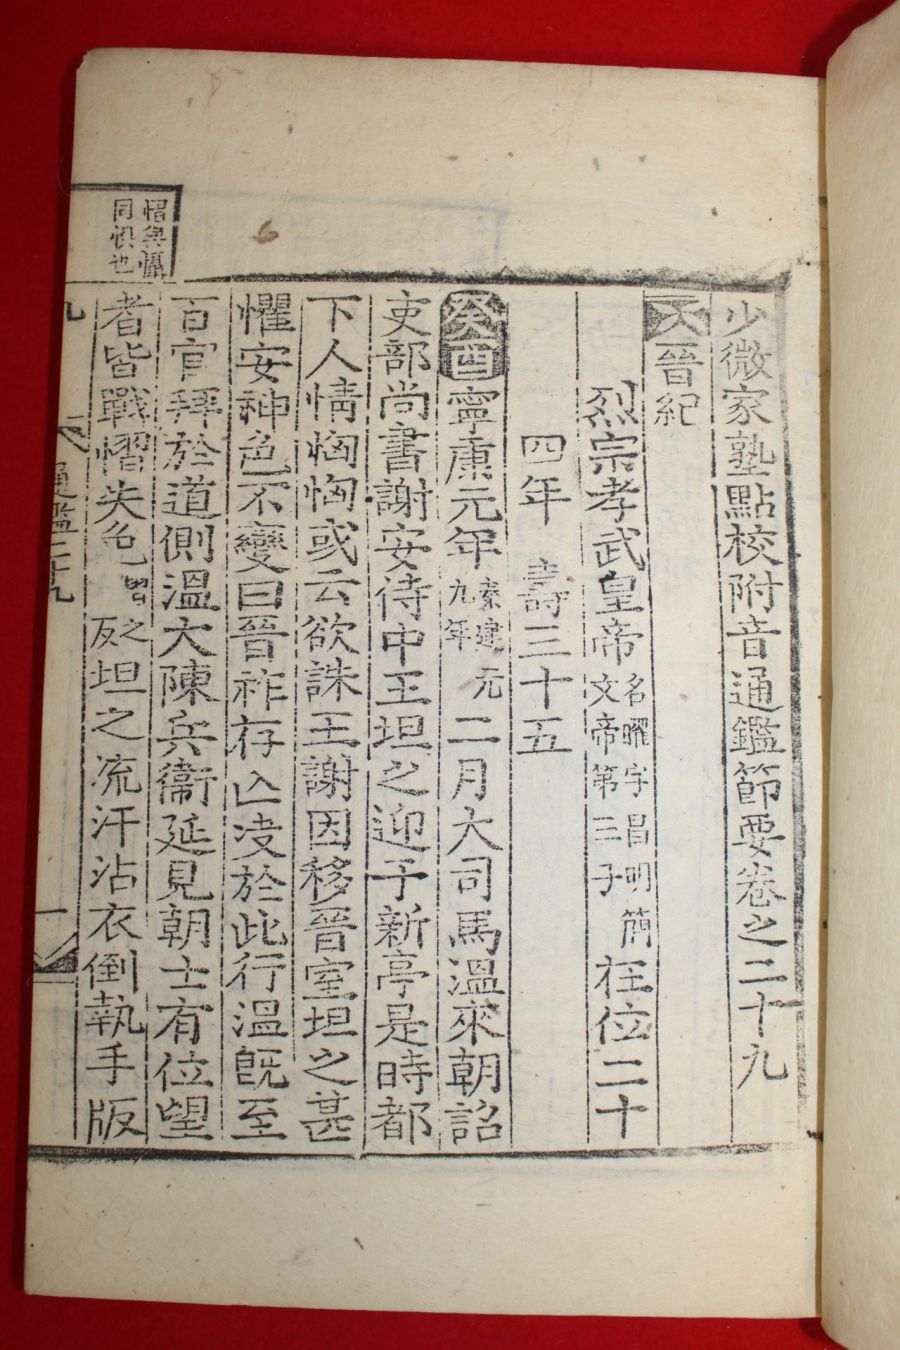 少微家塾點校附音通鑑節要卷之二十九
晉紀
烈宗孝武皇帝名曜字昌明簡文帝第三子在位二十
四年 壽三十五
癸酉寧康元年秦建元九年二月大司馬溫來朝詔
吏部尚書謝安侍中王坦之迎于新亭是時都
下人情恟恟或云欲誅王謝因移晉室坦之甚
懼安神色不變曰晉祚存亾决於此行溫旣至
百官拜於道側溫大陳兵衞延見朝士有位望
者皆戰慴失色之反坦之流汗沾衣倒執手版
慴與懾
同惧也
通鑑二十九
一